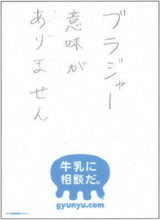 ブラジャー
意味が
ありません
牛乳に
相談だ。
gyunyu.com